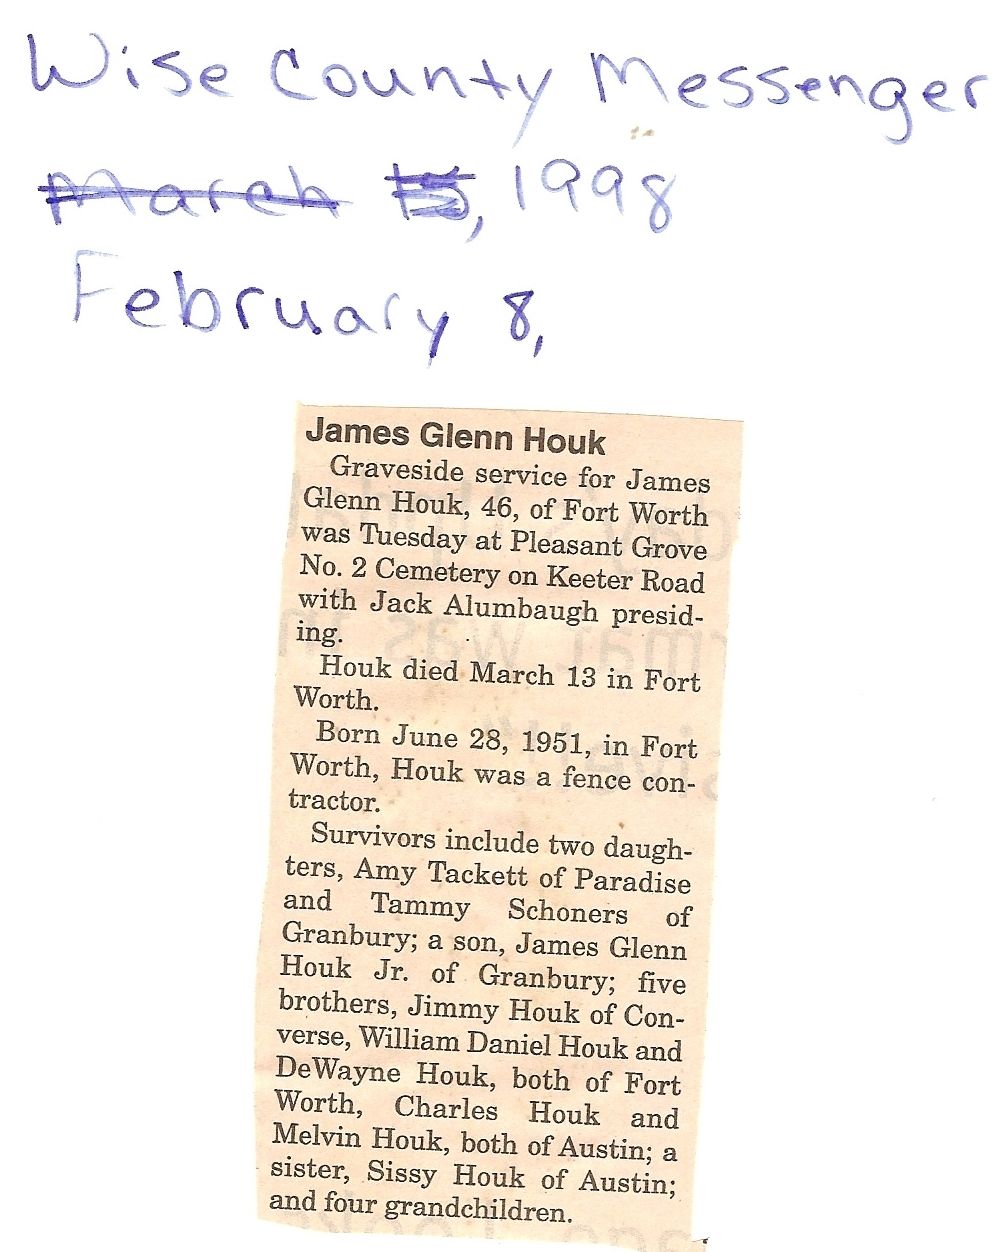 Wise County Messenger
March 15, 1998
February 8,
James Glenn Houk
Graveside service for James
Glenn Houk, 46, of Fort Worth
was Tuesday at Pleasant Grove
No. 2 Cemetery on Keeter Road
with Jack Alumbaugh presid-
ing.
Houk died March 13 in Fort
Worth.
Born June 28, 1951, in Fort
Worth, Houk was a fence con-
tractor.
Survivors include two daugh-
ters, Amy Tackett of Paradise
and Tammy Schoners of
Granbury; a son, James Glenn
Houk Jr. of Granbury; five
brothers, Jimmy Houk of Con-
verse, William Daniel Houk and
DeWayne Houk, both of Fort
Worth, Charles Houk and
Melvin Houk, both of Austin; a
sister, Sissy Houk of Austin;
and four grandchildren.